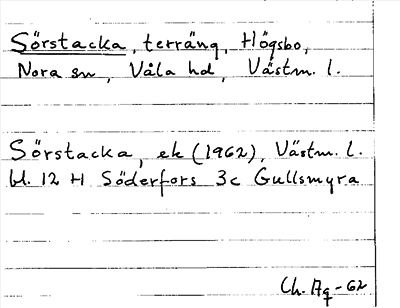 Sörstacka, terräng, Högsbo,
Nora sn, Våla hd, Västm. l.
Sörstacka, ek (1962), Västm. l.
bl. 12 H Söderfors 3c Gullsmyra
Ch. Ag -62